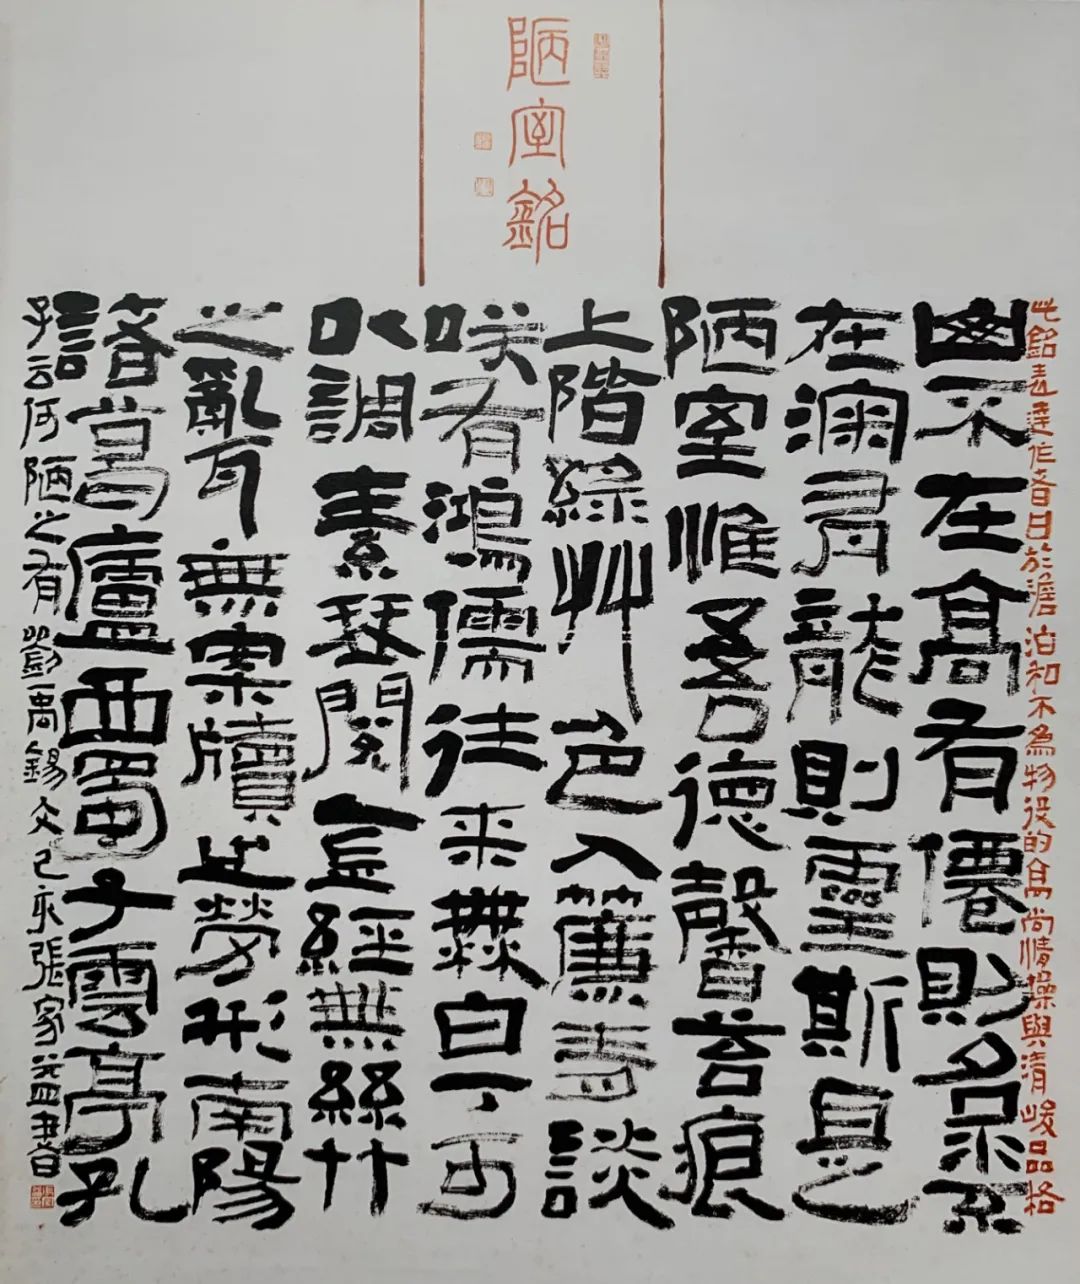 陋室銘
此銘表達作者甘於澹泊和不為物役的高尚情操與清峻品格
山不在高有僊則名水不
在深有龍則靈斯是
陋室惟吾德馨苔痕
上階綠艸色入簾青談
咲有鴻儒往来無白丁可
以調素琴閱金經無絲竹
之亂耳無案牘之勞形南陽
諸葛廬西蜀子雲亭孔
子云何陋之有劉禹錫文己亥張家益書